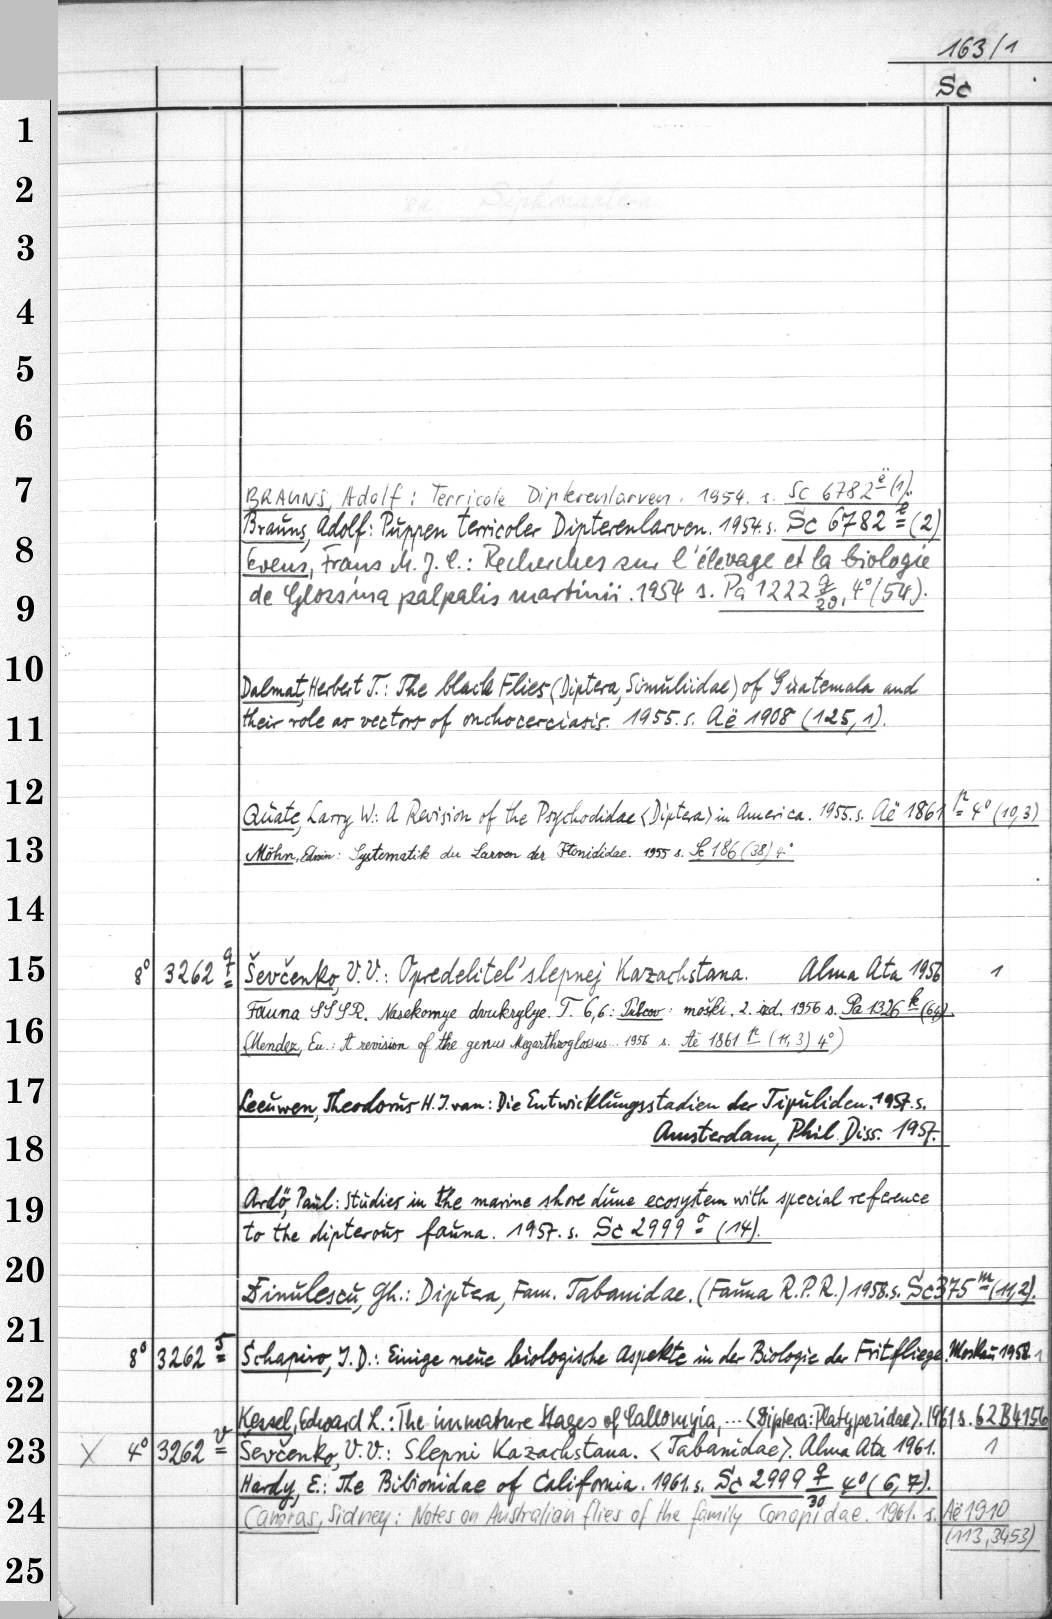 163/1
Sc
1
2
3
4
5
6
7
BRAUNS, Adolf: Terricole Dipterenlarven. 1954. s. Sc 6782 ë (1).
Brauns, Adolf: Puppen terricoler Dipterenlarven. 1954. s. Sc 6782 ë (2)
8
Evens, Frans M. J. C.: Recherches sur l'élevage et la biologie
9
de Glossina palpalis martinii. 1954 s. Pa 1222 q/20, 4° (54).
10
Dalmat, Herbert T.: The black Flies (Diptera, Simuliidae) of Guatemala and
11
their role as vectors of onchocerciasis. 1955. s. Aë 1908 (125, 1).
12
Quate, Larry W: A Revision of the Psychodidae <Diptera> in America. 1955. s. Aë 1861 n 4° (10,3)
13
Möhn, Edwin: Systematik der Larven der Itonididae. 1955 s. Sc 186 (38) 4°
14
15
8° 3262 q/t Ševčenko, V. V.: Opredelitel' slepnej Kazachstana. Alma Ata 1956 1
Fauna SSSR. Nasekomye dvukrylye. T. 6,6: moški. 2. izd. 1956 s. Pa 1326 k (64).
16
(Mendez, Eu.: A revision of the genus Megarthroglossus... 1956 s. Aë 1861 n (11, 3) 4°)
17
Leeuwen, Theodorus H. J. van: Die Entwicklungsstadien der Tipuliden. 1957. s.
18
Amsterdam, Phil. Diss. 1957.
19
Ardö, Paul: Studies in the marine shore dune ecosystem with special reference
to the dipterous fauna. 1957. s. Sc 2999 o (14).
20
Dinulescu, Gh.: Diptera, Fam. Tabanidae. (Fauna R.P.R.) 1958. s. Sc 375 m (11,2).
21
8° 3262 s Schapiro, J. D.: Einige neue biologische Aspekte in der Biologie der Fritfliege. Moskau 1958. 1
22
Kessel, Edward L.: The immature Stages of Callomyia, ... <Diptera: Platypezidae>. 1961 s. 62 B 4156
23
X 4° 3262 v Ševčenko, V. V.: Slepni Kazachstana. <Tabanidae>. Alma Ata 1961. 1
Hardy, E.: The Bibionidae of California. 1961. s. Sc 2999 q/30 4° (6, 7).
24
Camras, Sidney: Notes on Australian flies of the family Conopidae. 1961. s. Aë 1910
(113, 3453)
25